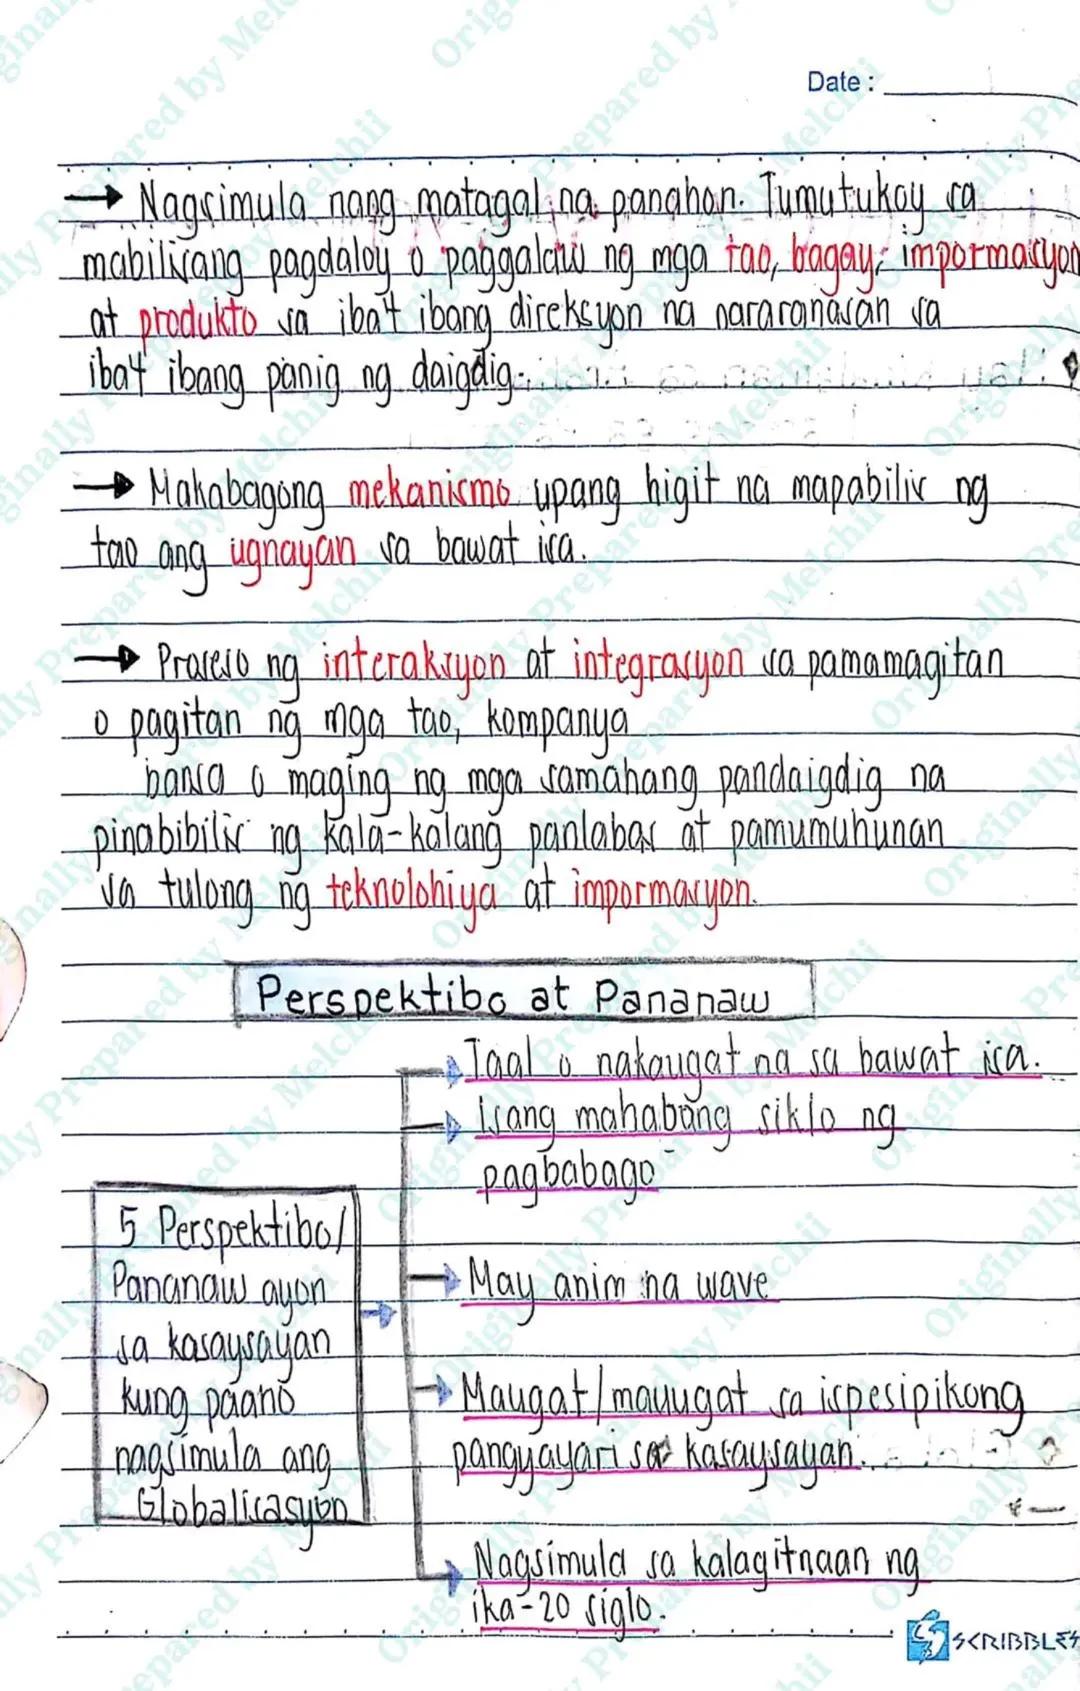 Date :
→ Nagsimula nang matagal na panahon. Tumutukoy sa
mabilisang pagdaloy o paggalaw ng mga tao, bagay, impormasyon
at produkto sa iba't ibang direksyon na nararanasan sa
iba't ibang panig ng daigdig.
→ Makabagong mekanismo upang higit na mapabilis ng
tao ang ugnayan sa bawat isa.
→ Proseso ng interaksyon at integrasyon sa pamamagitan
o pagitan ng mga tao, kompanya
bansa o maging ng mga samahang pandaigdig na
pinabibilis ng kala-kalang panlabas at pamumuhunan
sa tulong ng teknolohiya at impormasyon.
Perspektibo at Pananaw
5 Perspektibo/
Pananaw ayon
sa kasaysayan
kung paano
nagsimula ang
Globalisasyon
→ Taal o nakaugat na sa bawat isa.
→ Isang mahabang siklo ng
pagbabago
→ May anim na wave
→ Maugat/mauugat sa ispesipikong
pangyayari sa kasaysayan.
→ Nagsimula sa kalagitnaan ng
ika-20 siglo.
SCRIBBLES
Originally Prepared by Melchii